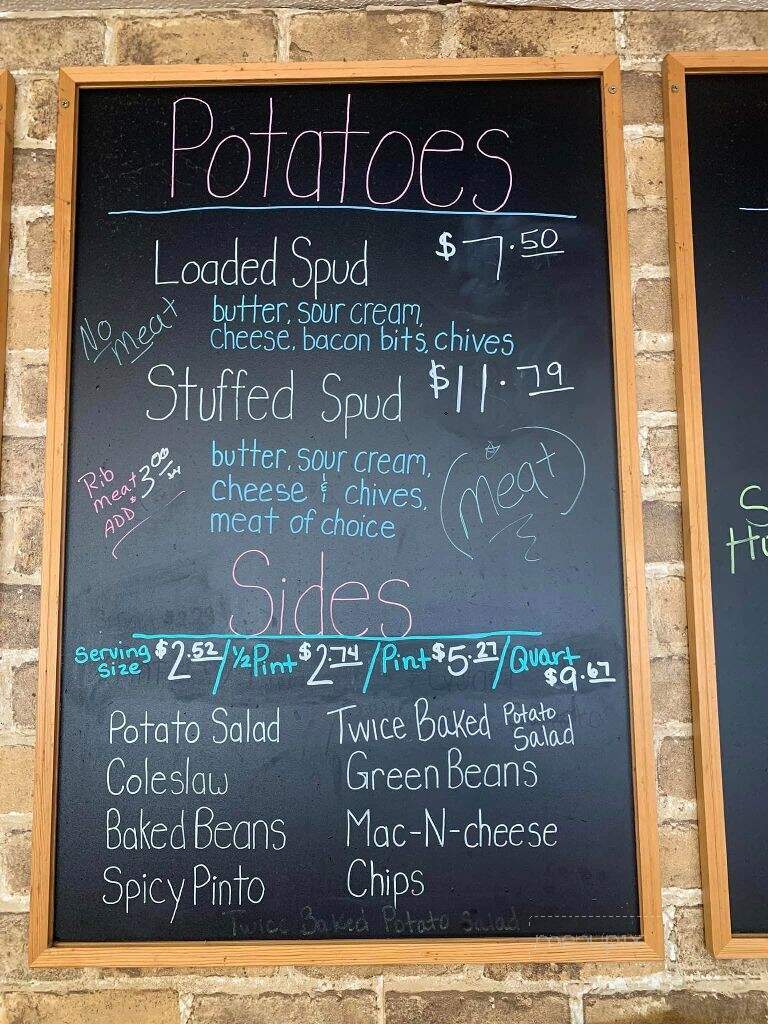 Potatoes
Loaded Spud $7.50
No meat
butter, sour cream,
cheese, bacon bits, chives
Stuffed Spud $11.79
Rib meat ADD $3.00
butter, sour cream,
cheese & chives,
meat of choice
meat
Sides
Serving size $2.52 / ½ Pint $2.74 / Pint $5.27 / Quart $9.67
Potato Salad
Twice Baked Potato Salad
Coleslaw
Green Beans
Baked Beans
Mac-N-cheese
Spicy Pinto
Chips
Twice Baked Potato Salad
S
Hu